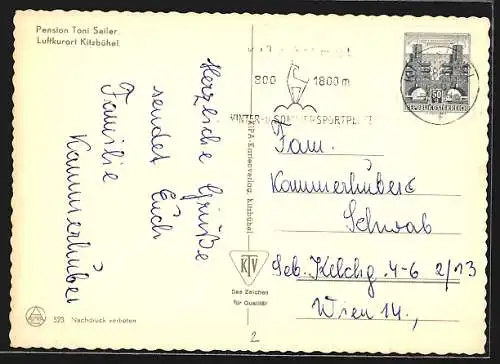 Pension Toni Sailer
Luftkurort Kitzbühel
Herzliche Grüße
sendet Euch
Familie
Kammerhuber
523 Nachdruck verboten
RIPA-Kartenverlag, Kitzbühel
KTV
Das Zeichen
für Qualität
2
800 1800 m
WINTER- u. SOMMERSPORTPLATZ
50
REPUBLIK ÖSTERREICH
Fam.
Kammerhuber
Schwab
Seb. Kelchg. 4-6 2/13
Wien 14.,